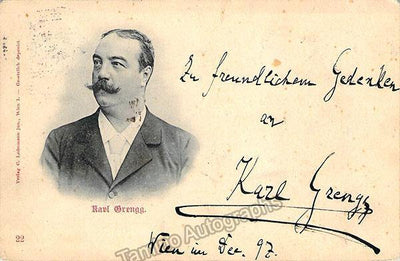 Zu freundlichem Gedenken
an
Karl Grengg
Wien im Dec. 97.
Karl Grengg.
Verlag C. Ledermann jun., Wien I. — Gesetzlich deponirt
22
Tamino Autographs